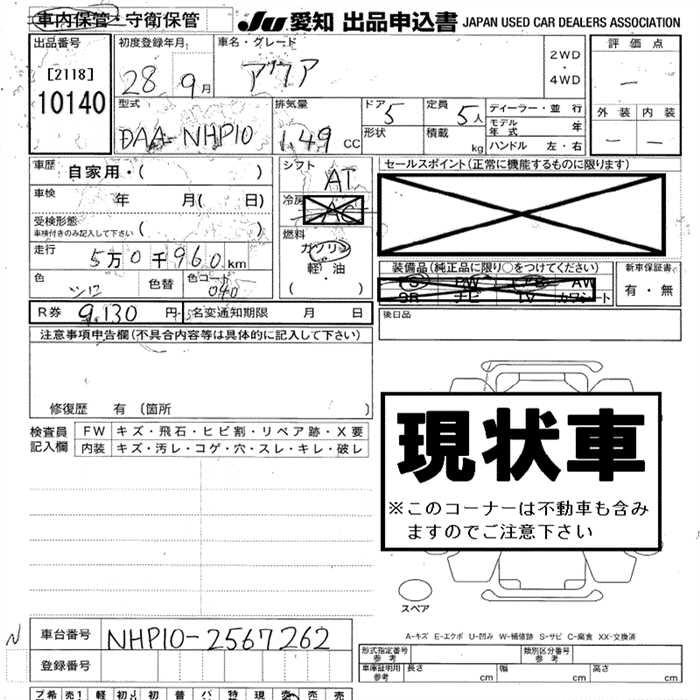 車内保管・守衛保管
JU 愛知 出品申込書 JAPAN USED CAR DEALERS ASSOCIATION
出品番号
[2118]
10140
初度登録年月
28年9月
車名・グレード
アクア
2WD
・
4WD
評価点
—
外装 内装
— —
型式
DAA-NHP10
排気量
1.49 CC
ドア 5
形状
定員 5人
積載 kg
ディーラー・並行
モデル年式 年
ハンドル 左・右
車歴 自家用・( )
車検 年 月( 日)
受検形態
車検付きのみ記入して下さい ( )
走行 5万0千960km
色 シロ 色替 色コード 040
シフト AT
冷房 AC
燃料
ガソリン
軽・油
( ・ )
セールスポイント(正常に機能するものに限ります)
装備品(純正品に限り○をつけてください)
PW AW
SR ナビ TV カワシート
新車保証書
有・無
R券 9,130円 名変通知期限 月 日
後日品
注意事項申告欄(不具合内容等は具体的に記入して下さい)
修復歴 有(箇所 )
検査員記入欄
FW キズ・飛石・ヒビ割・リペア跡・X要
内装 キズ・汚レ・コゲ・穴・スレ・キレ・破レ
現状車
※このコーナーは不動車も含み
ますのでご注意下さい
スペア
A-キズ E-エクボ U-凹み W-補修跡 S-サビ C-腐食 XX-交換済
N
車台番号 NHP10-2567262
登録番号
形式指定番号 参考
類別区分番号 参考
車庫証明用 参考 長さ cm 幅 cm 高さ cm